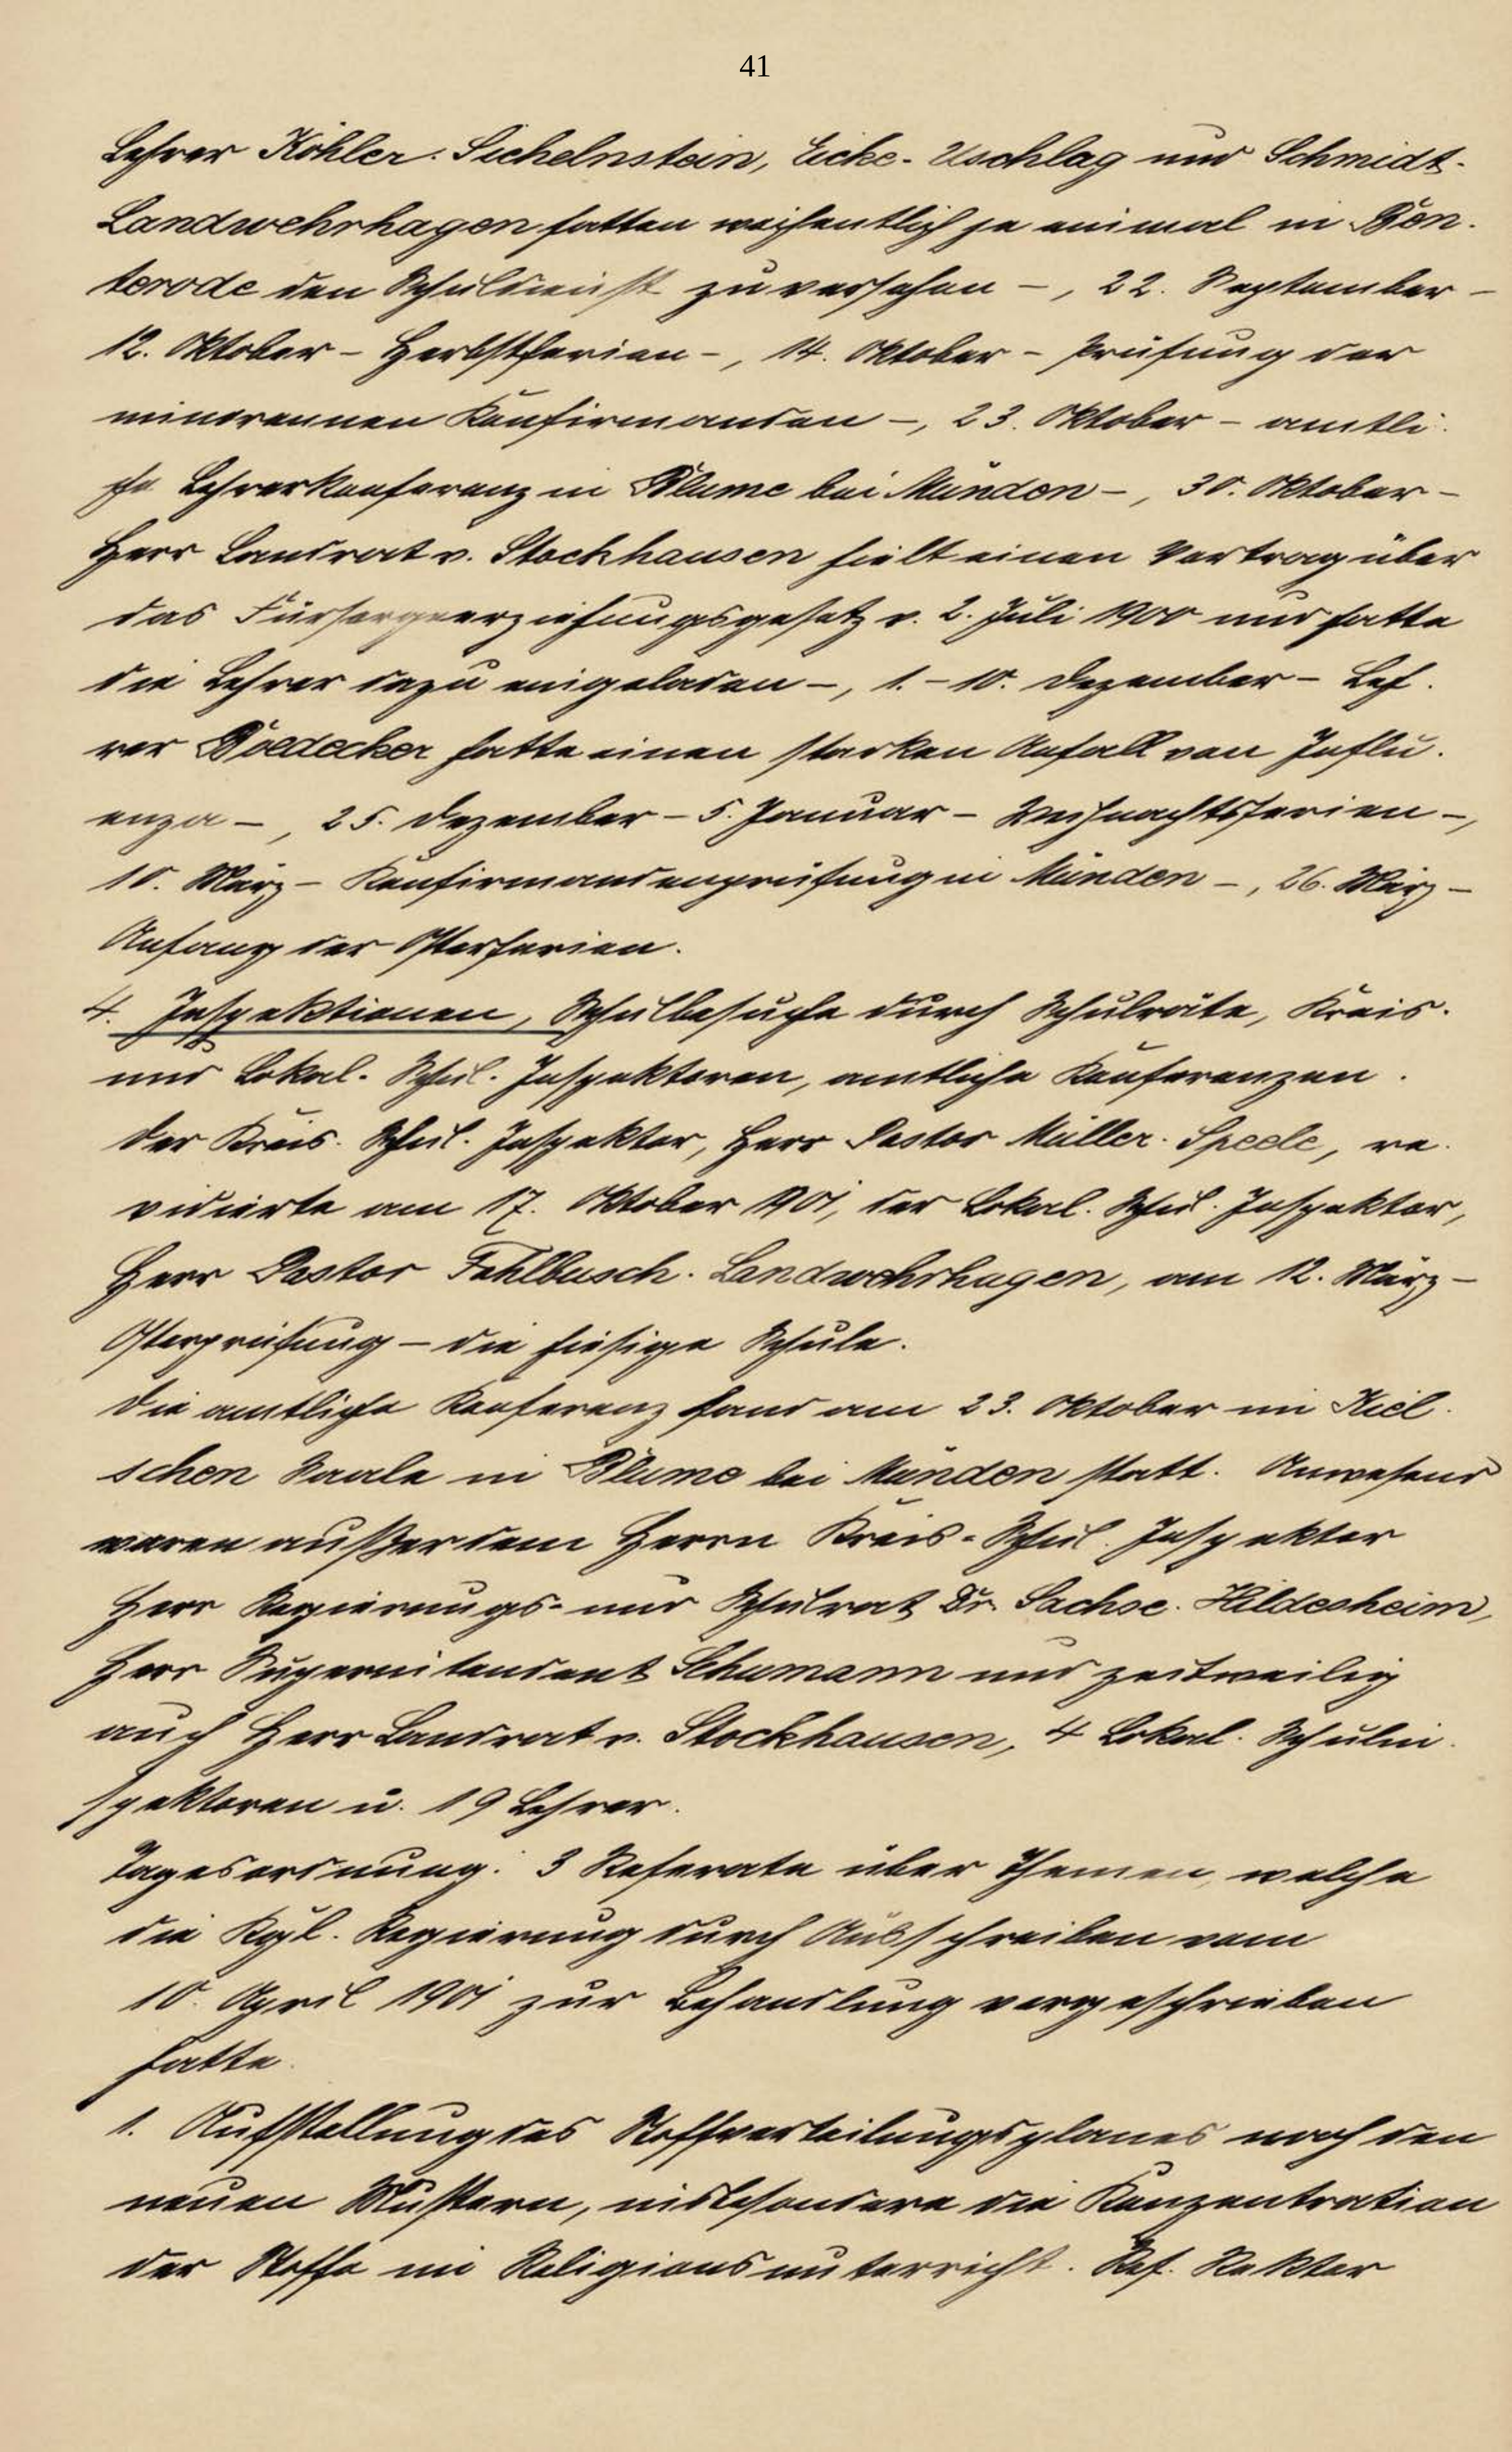 41
Lehrer Köhler-Sichelnstein, Eicke-Uschlag und Schmidt-
Landwehrhagen hatten wöchentlich je einmal in Ben-
terode den Schuldienst zu versehen –, 22. September –
12. Oktober – Herbstferien –, 14. Oktober – Prüfung der
Konfirmanden –, 23. Oktober – amtli-
che Lehrerkonferenz in Blume bei Münden –, 30. Oktober –
Herr Landrat v. Stockhausen hielt einen Vortrag über
das Fürsorgeerziehungsgesetz v. 2. Juli 1900 und hatte
die Lehrer dazu eingeladen –, 1. – 10. Dezember – Leh-
rer Boedecker hatte einen starken Anfall von Influ-
enza –, 25. Dezember – 5. Januar – Weihnachtsferien –,
10. März – Konfirmandenprüfung in Münden –, 26. März –
Anfang der Osterferien.
4. Inspektionen, Schulbesuche durch Schulräte, Kreis-
und Lokal-Schul-Inspektoren, amtliche Konferenzen.
Der Kreis-Schul-Inspektor, Herr Pastor Müller-Speele, re-
vidierte am 17. Oktober 1901, der Lokal-Schul-Inspektor,
Herr Pastor Fahlbusch-Landwehrhagen, am 12. März –
Osterprüfung – die hiesige Schule.
Die amtliche Konferenz fand am 23. Oktober im Kiel-
schen Saale in Blume bei Münden statt. Anwesend
waren außer dem Herrn Kreis-Schul-Inspektor
Herr Regierungs- und Schulrat Dr. Sachse-Hildesheim,
Herr Superintendent Schumann und zeitweilig
auch Herr Landrat v. Stockhausen, 4 Lokal-Schulin-
spektoren u. 19 Lehrer.
Tagesordnung: 3 Referate über Themen, welche
die Kgl. Regierung durch Ausschreiben vom
10. April 1901 zur Behandlung vorgeschrieben
hatte.
1. Aufstellung des Stoffverteilungsplanes nach den
neuen Mustern, insbesondere die Konzentration
der Stoffe im Religionsunterricht. Ref. Rektor